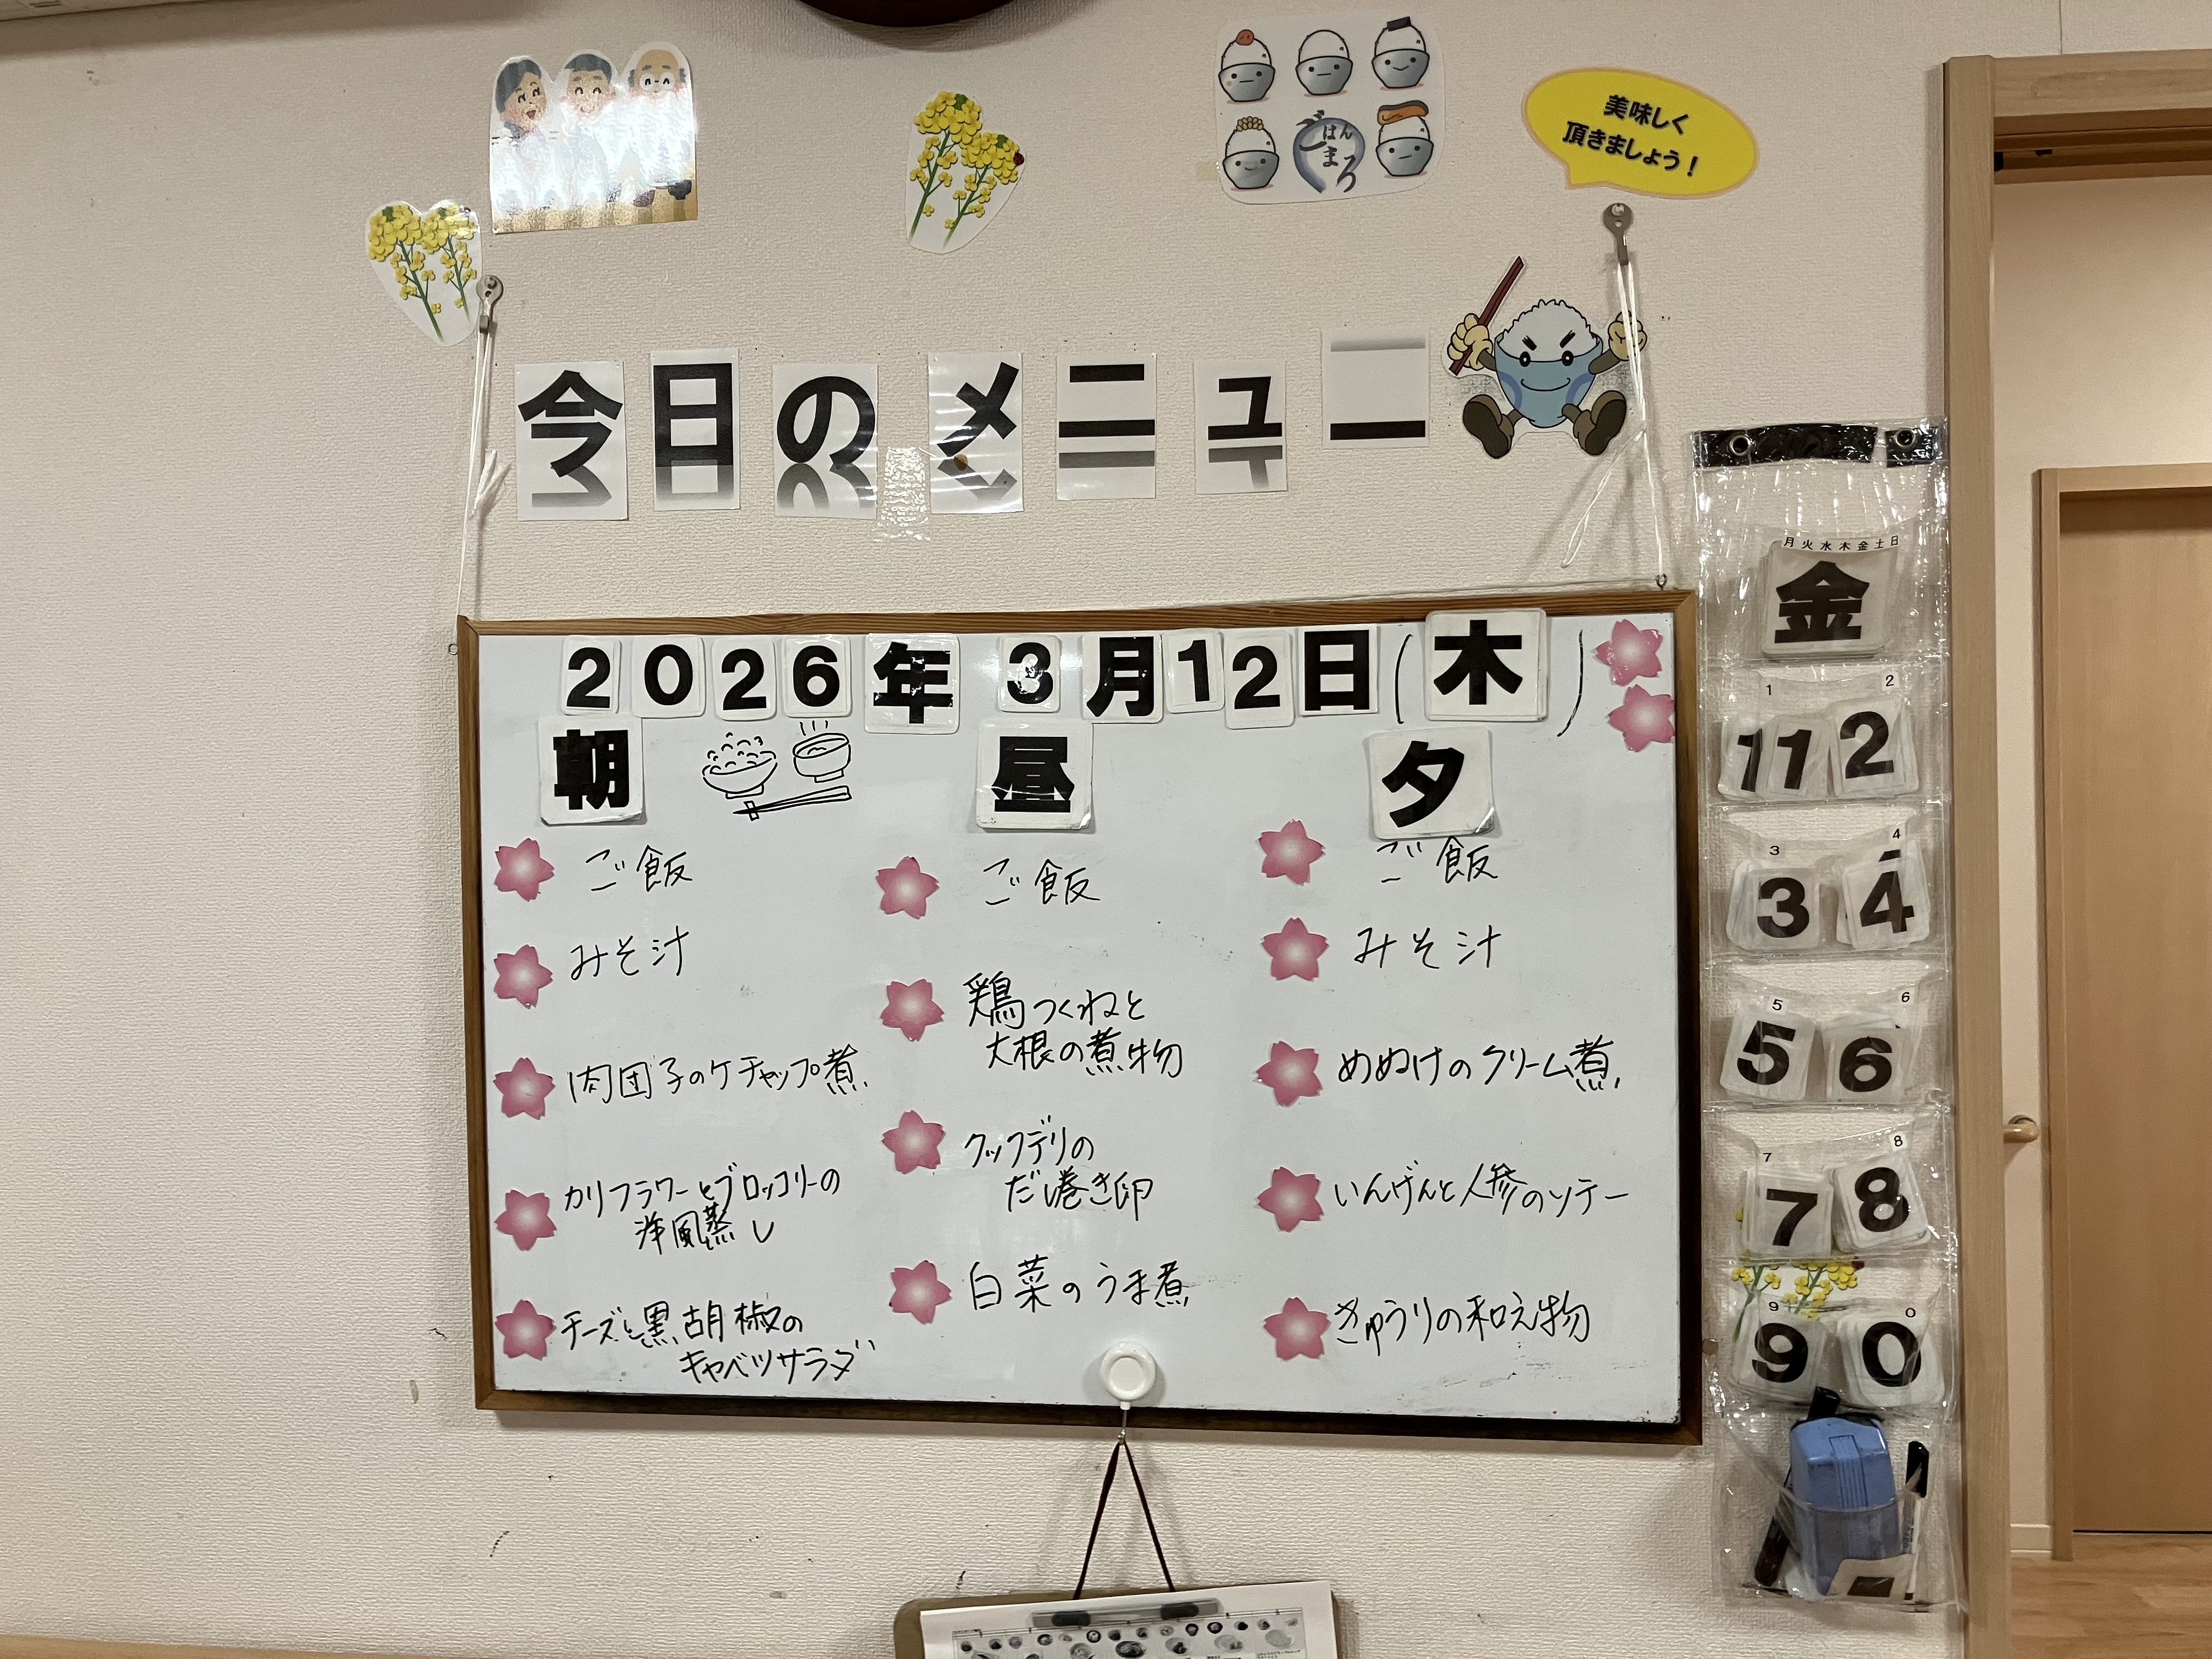 ごはん
まろ
美味しく
頂きましょう！
今日のメニュー
2026年3月12日(木)
朝
ご飯
みそ汁
肉団子のケチャップ煮
カリフラワーとブロッコリーの
洋風蒸し
チーズと黒胡椒の
キャベツサラダ
昼
ご飯
鶏つくねと
大根の煮物
クックデリの
だし巻き卵
白菜のうま煮
夕
ご飯
みそ汁
めぬけのクリーム煮
いんげんと人参のソテー
きゅうりの和え物
月火水木金土日
金
1 2
1 1 2
3 4
3 4
5 6
5 6
7 8
7 8
9 0
9 0